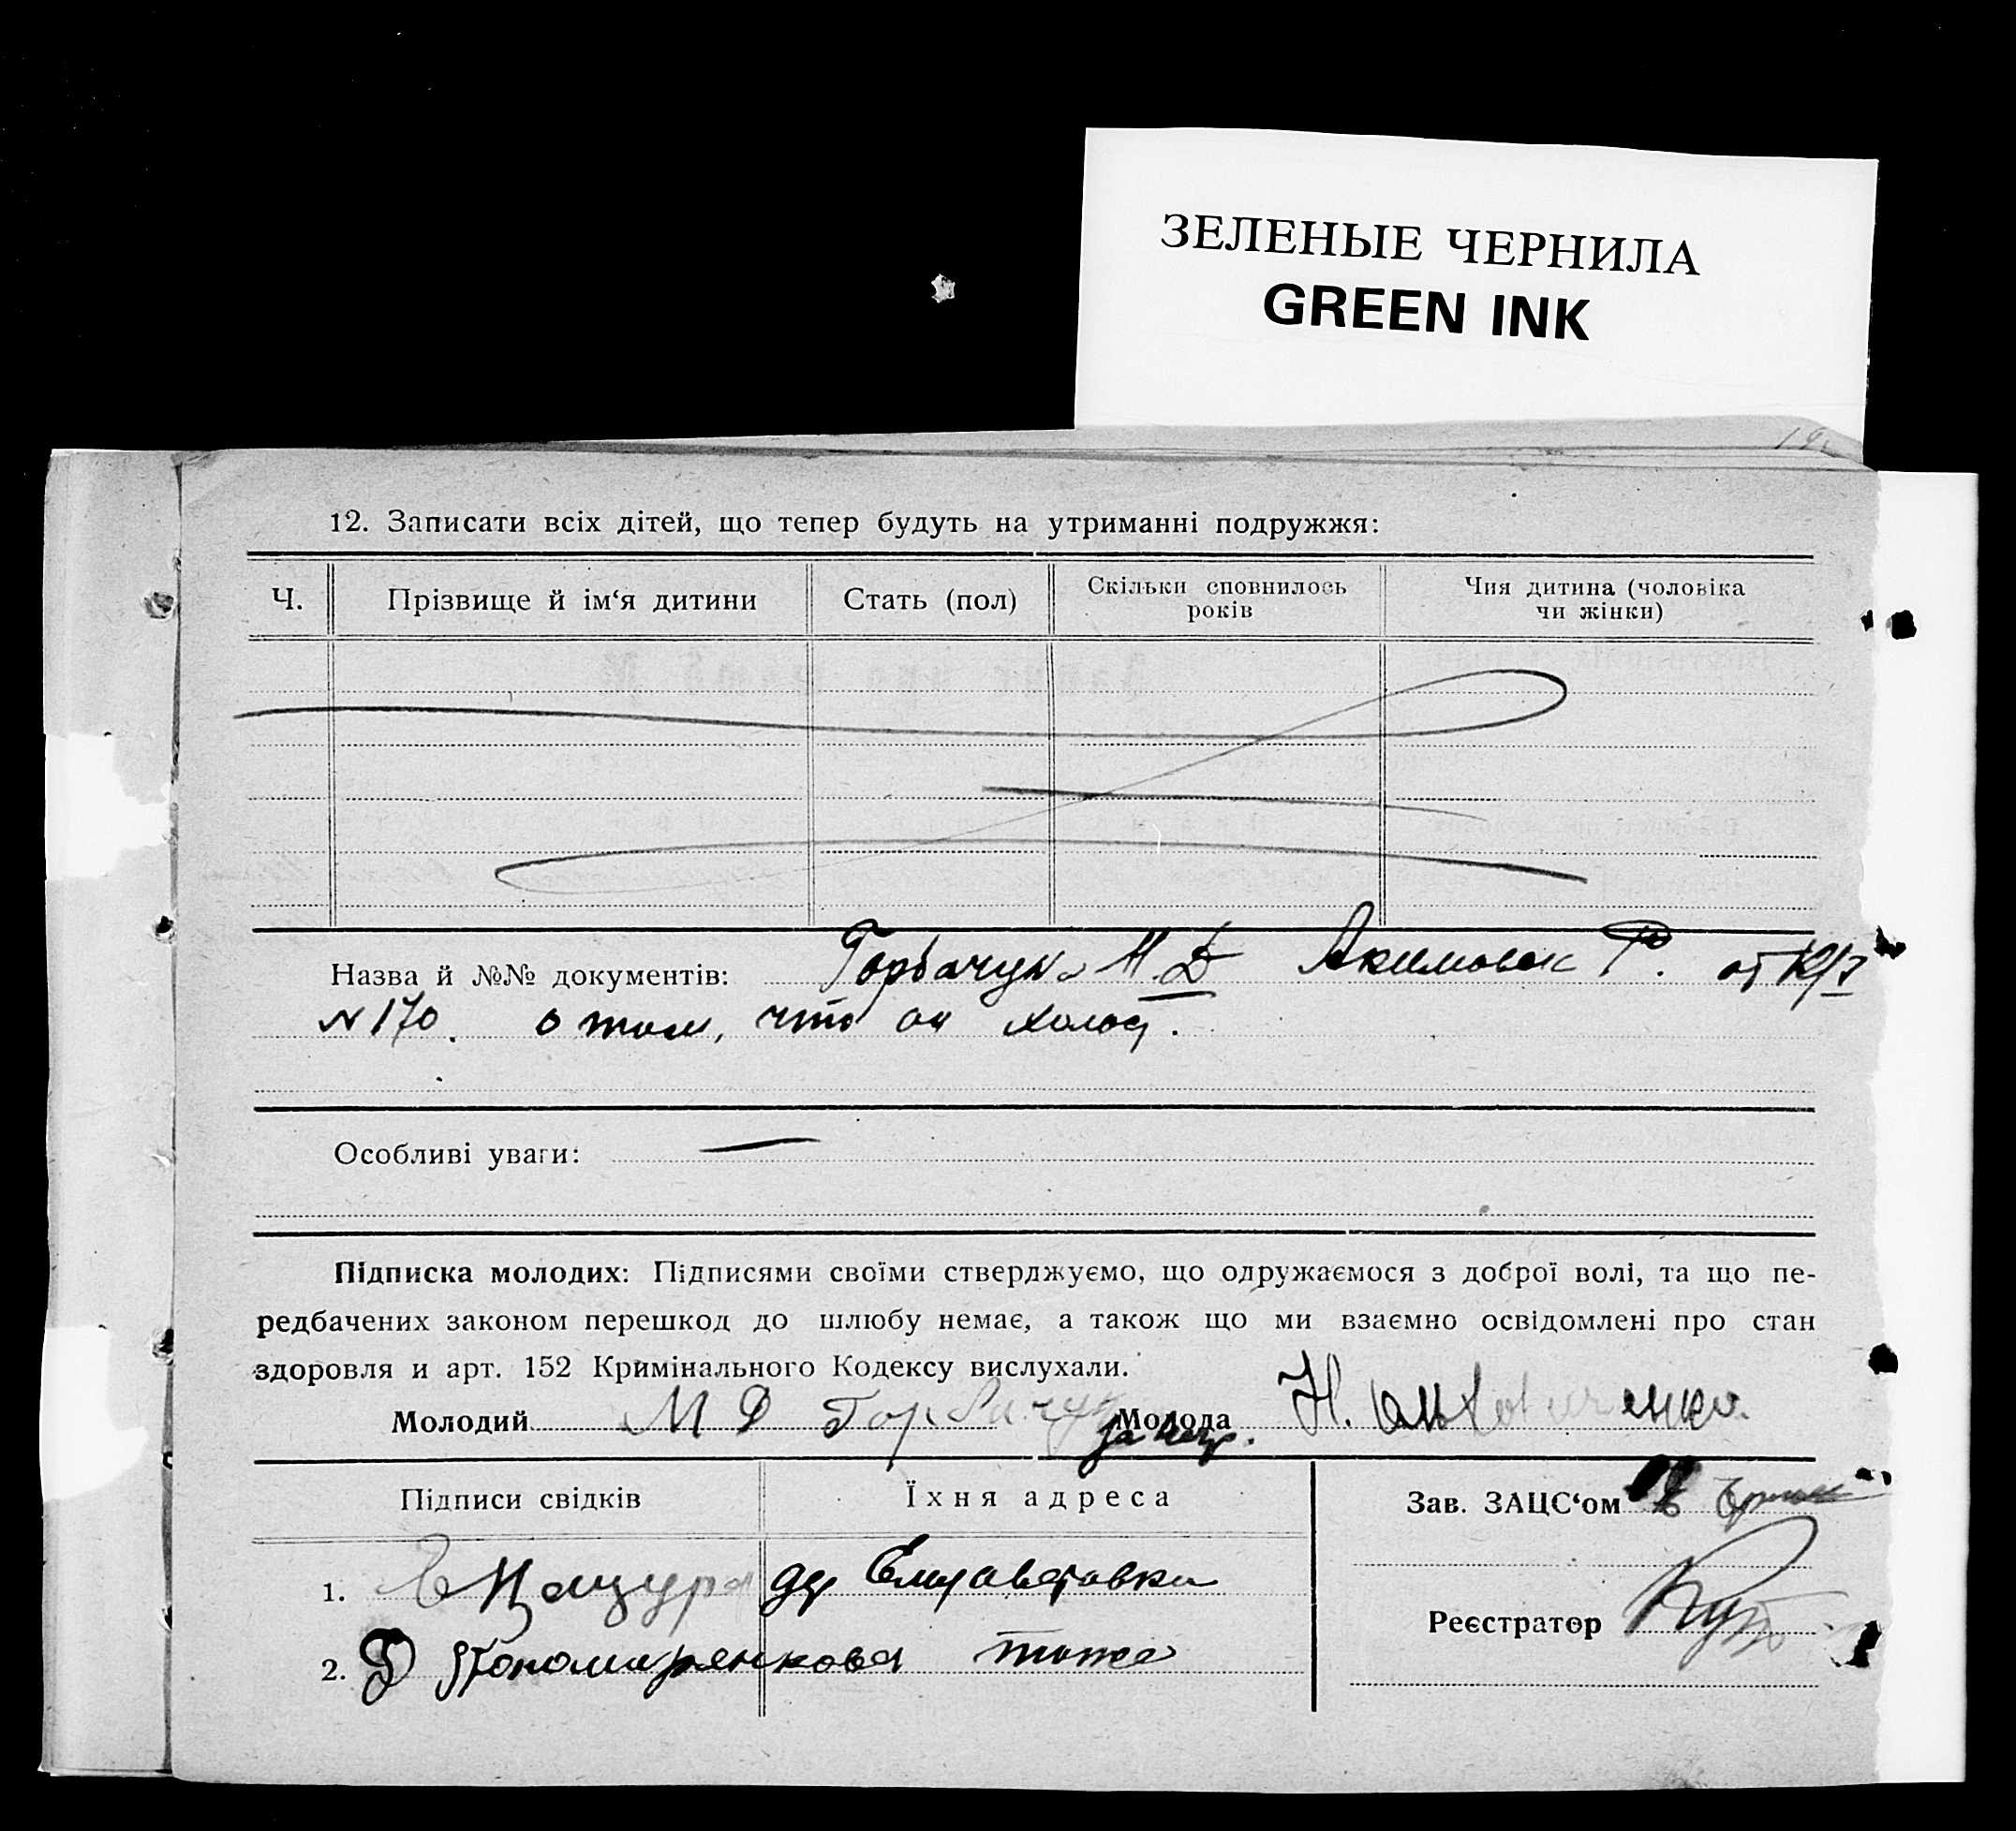 ЗЕЛЕНЫЕ ЧЕРНИЛА
GREEN INK
12. Записати всіх дітей, що тепер будуть на утриманні подружжя:
Ч. Прізвище й ім‘я дитини Стать (пол) Скільки сповнилось років Чия дитина (чоловіка чи жінки)
Назва й №№ документів: Горбачук М.Д Р. от
N 170. о том, что он холост.
Особливі уваги: —
Підписка молодих: Підписями своїми стверджуємо, що одружаємося з доброї волі, та що пе-
редбачених законом перешкод до шлюбу немає, а також що ми взаємно освідомлені про стан
здоровля и арт. 152 Кримінального Кодексу вислухали.
Молодий М Д Горбачук Молода Н.
за негр.
Підписи свідків Їхня адреса Зав. ЗАЦС‘ом
1. Е Кацура Елизаветовка
Реєстратор
2. Пономаренкова тоже